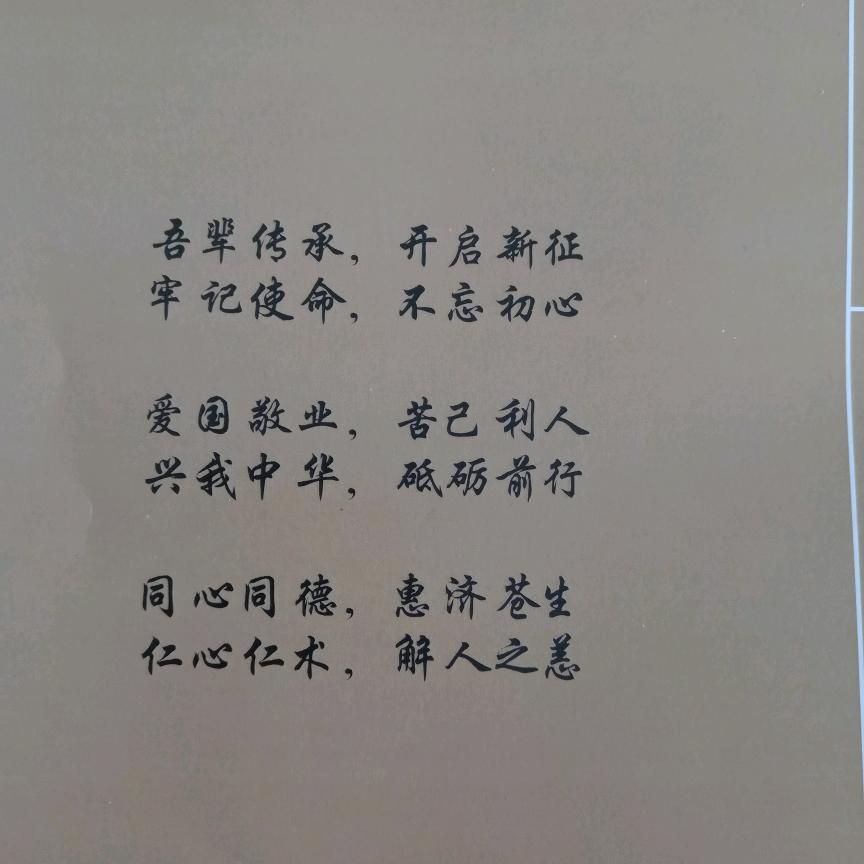 吾辈传承，开启新征
牢记使命，不忘初心
爱国敬业，苦己利人
兴我中华，砥砺前行
同心同德，惠济苍生
仁心仁术，解人之恙